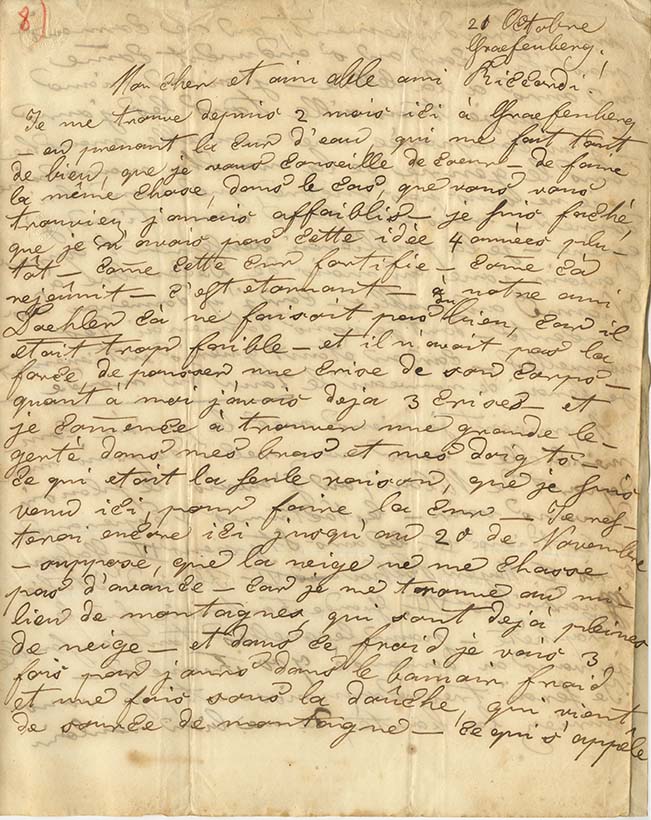 8)
20 Octobre
Graefenberg.
Mon cher et aimable ami Riccordi!
Je me trouve depuis 2 mois ici à Graefenberg
– en prenant la Cur d'eau, qui me fait tant
de bien, que je vous conseille de coeur – de faire
la même chose, dans le cas, que vous vous
trouviez jamais affaiblis – je suis faché,
que je n'avais pas cette idée 4 années plu-
tât – come cette Cur fortifie – come ça
rejeûnit – c'est etonnant – à notre ami
Doehler çà ne faisoit pas du bien, car il
etait trop faible – et il n'avait pas la
force de pousser une crise de son corps –
quant à moi j'avais deja 3 crises – et
je comence à trouver une grande le-
gerté dans mes bras et mes doigts –
ce qui etait la seule raison, que je suis
venu ici, pour faire la Cur – Je res-
terai encore ici jusqu'au 20 de Novembre
– supposé, que la neige ne me chasse
pas d'avance – car je me trouve au mi-
lieu de montagnes, qui sont dejà pleines
de neige – et dans ce froid je vais 3
fois par jours dans le bain froid
et une fois sous la doûche, qui vient
de source de montagne – ce qui s'appêle